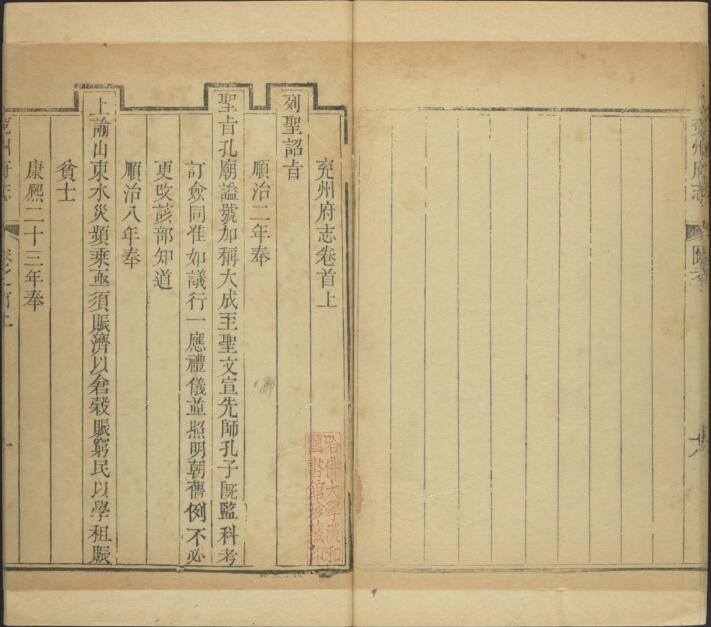 兗州府志
圖考
兗州府志卷首上
列聖詔旨
順治二年奉
聖旨孔廟謚號加稱大成至聖文宣先師孔子旣監科考
訂僉同准如議行一應禮儀並照明朝舊例不必
更改該部知道
順治八年奉
上諭山東水災頻乘亟須賑濟以倉穀賑窮民以學租賑
貧士
康熙二十三年奉
兗州府志
卷之首上
一
哈佛大學漢和
圖書館珍藏印